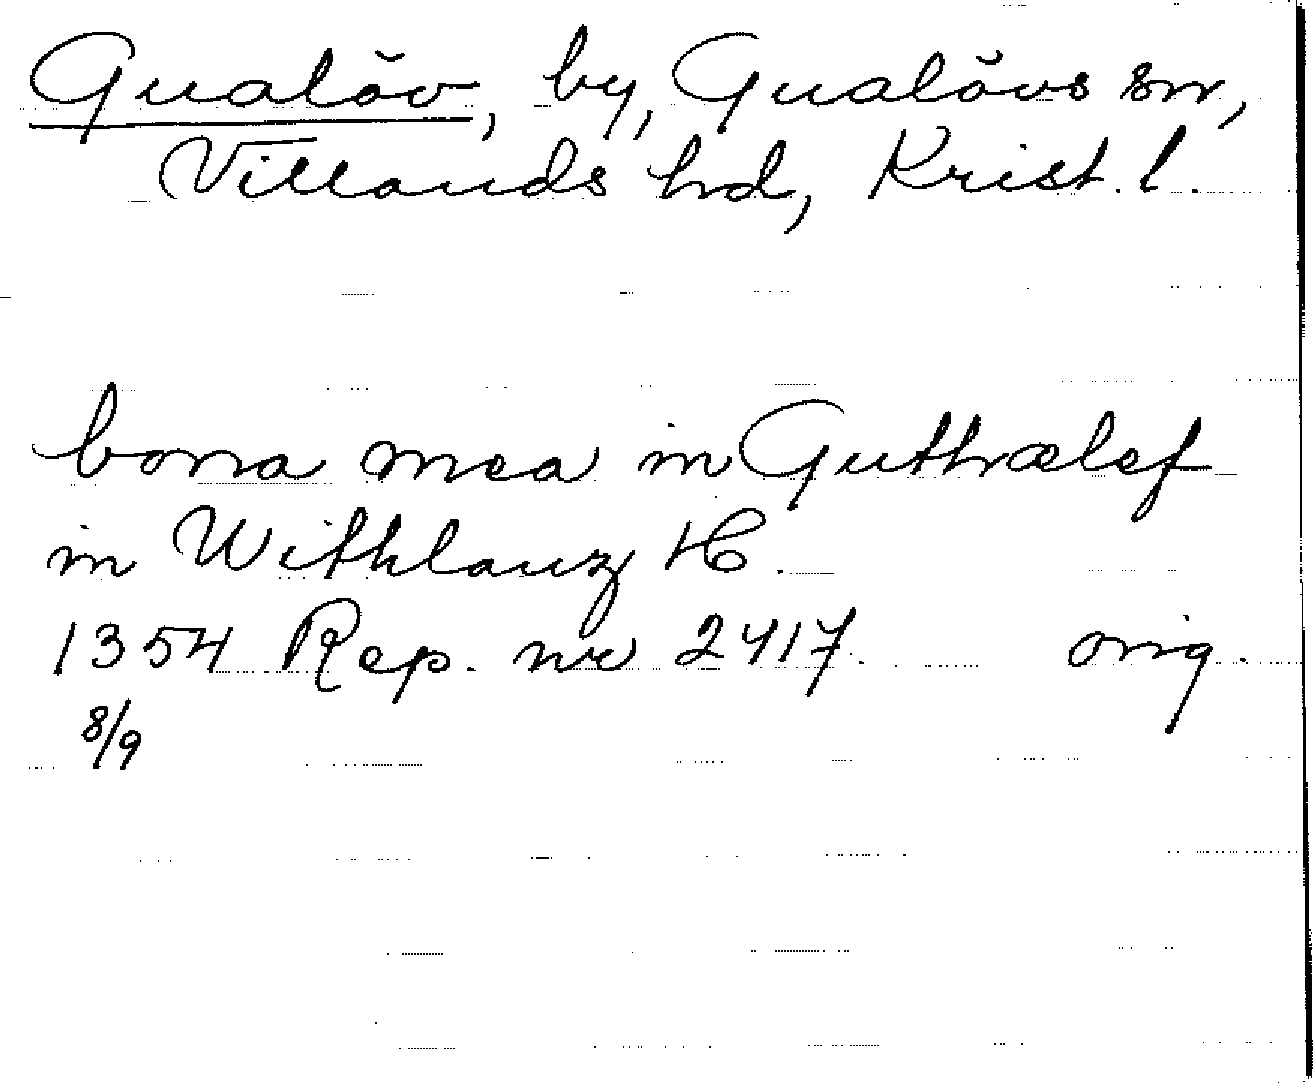 Gualöv, by, Gualövs sn,
Villands hd, Krist. l.
bona mea in Guthrælef
in Withlanz H.
1354 Rep. nr 2417. orig.
8/9